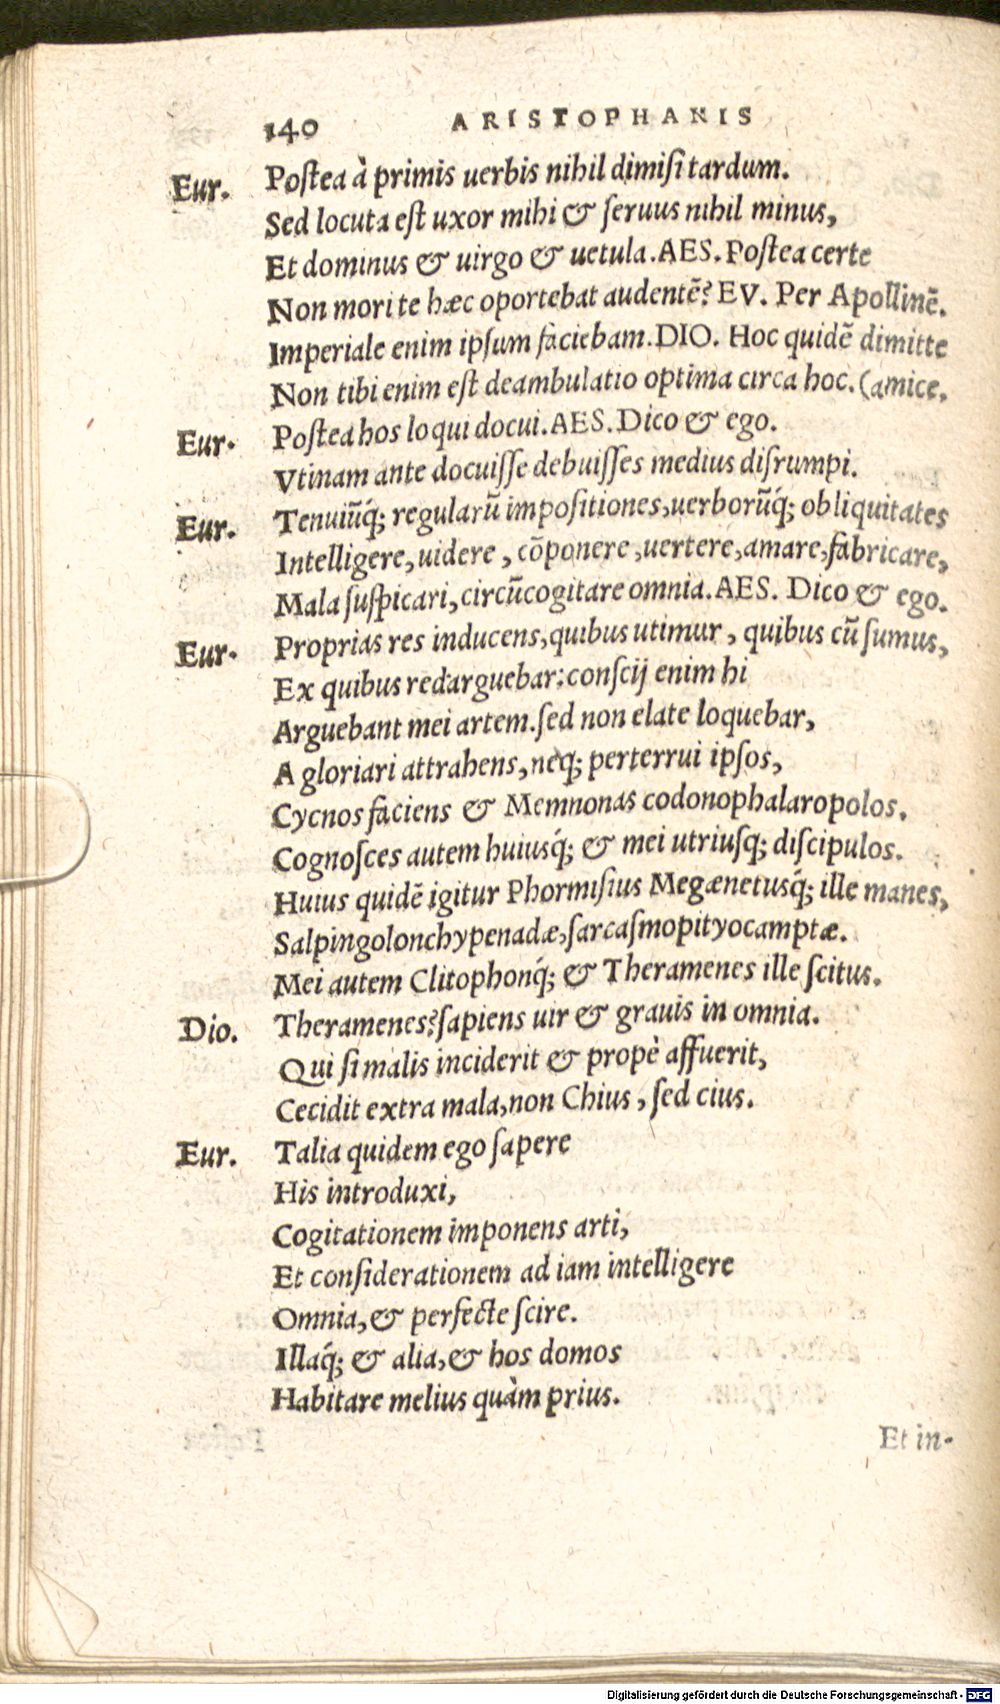 140 ARISTOPHANIS
Eur. Postea à primis uerbis nihil dimisi tardum.
Sed locuta est uxor mihi & seruus nihil minus,
Et dominus & uirgo & uetula. AES. Postea certe
Non mori te hæc oportebat audentẽ? EV. Per Apollinẽ.
Imperiale enim ipsum faciebam. DIO. Hoc quidẽ dimitte
Non tibi enim est deambulatio optima circa hoc. (amice.
Eur. Postea hos loqui docui. AES. Dico & ego.
Vtinam ante docuisse debuisses medius disrumpi.
Eur. Tenuiũq́; regularũ impositiones, uerborũq́; obliquitates
Intelligere, uidere, cõponere, uertere, amare, fabricare,
Mala suspicari, circũcogitare omnia. AES. Dico & ego.
Eur. Proprias res inducens, quibus utimur, quibus cũ sumus,
Ex quibus redarguebar: conscij enim hi
Arguebant mei artem. sed non elate loquebar,
A gloriari attrahens, neq; perterrui ipsos,
Cycnos faciens & Memnonas codonophalaropolos.
Cognosces autem huiusq́; & mei utriusq; discipulos.
Huius quidẽ igitur Phormisius Megænetusq́; ille manes,
Salpingolonchypenadæ, sarcasmopityocamptæ.
Mei autem Clitophonq́; & Theramenes ille scitus.
Dio. Theramenes? sapiens uir & grauis in omnia.
Qui si malis inciderit & propè affuerit,
Cecidit extra mala, non Chius, sed cius.
Eur. Talia quidem ego sapere
His introduxi,
Cogitationem imponens arti,
Et considerationem ad iam intelligere
Omnia, & perfecte scire.
Illaq́; & alia, & hos domos
Habitare melius quàm prius.
Et in-
Digitalisierung gefördert durch die Deutsche Forschungsgemeinschaft - DFG